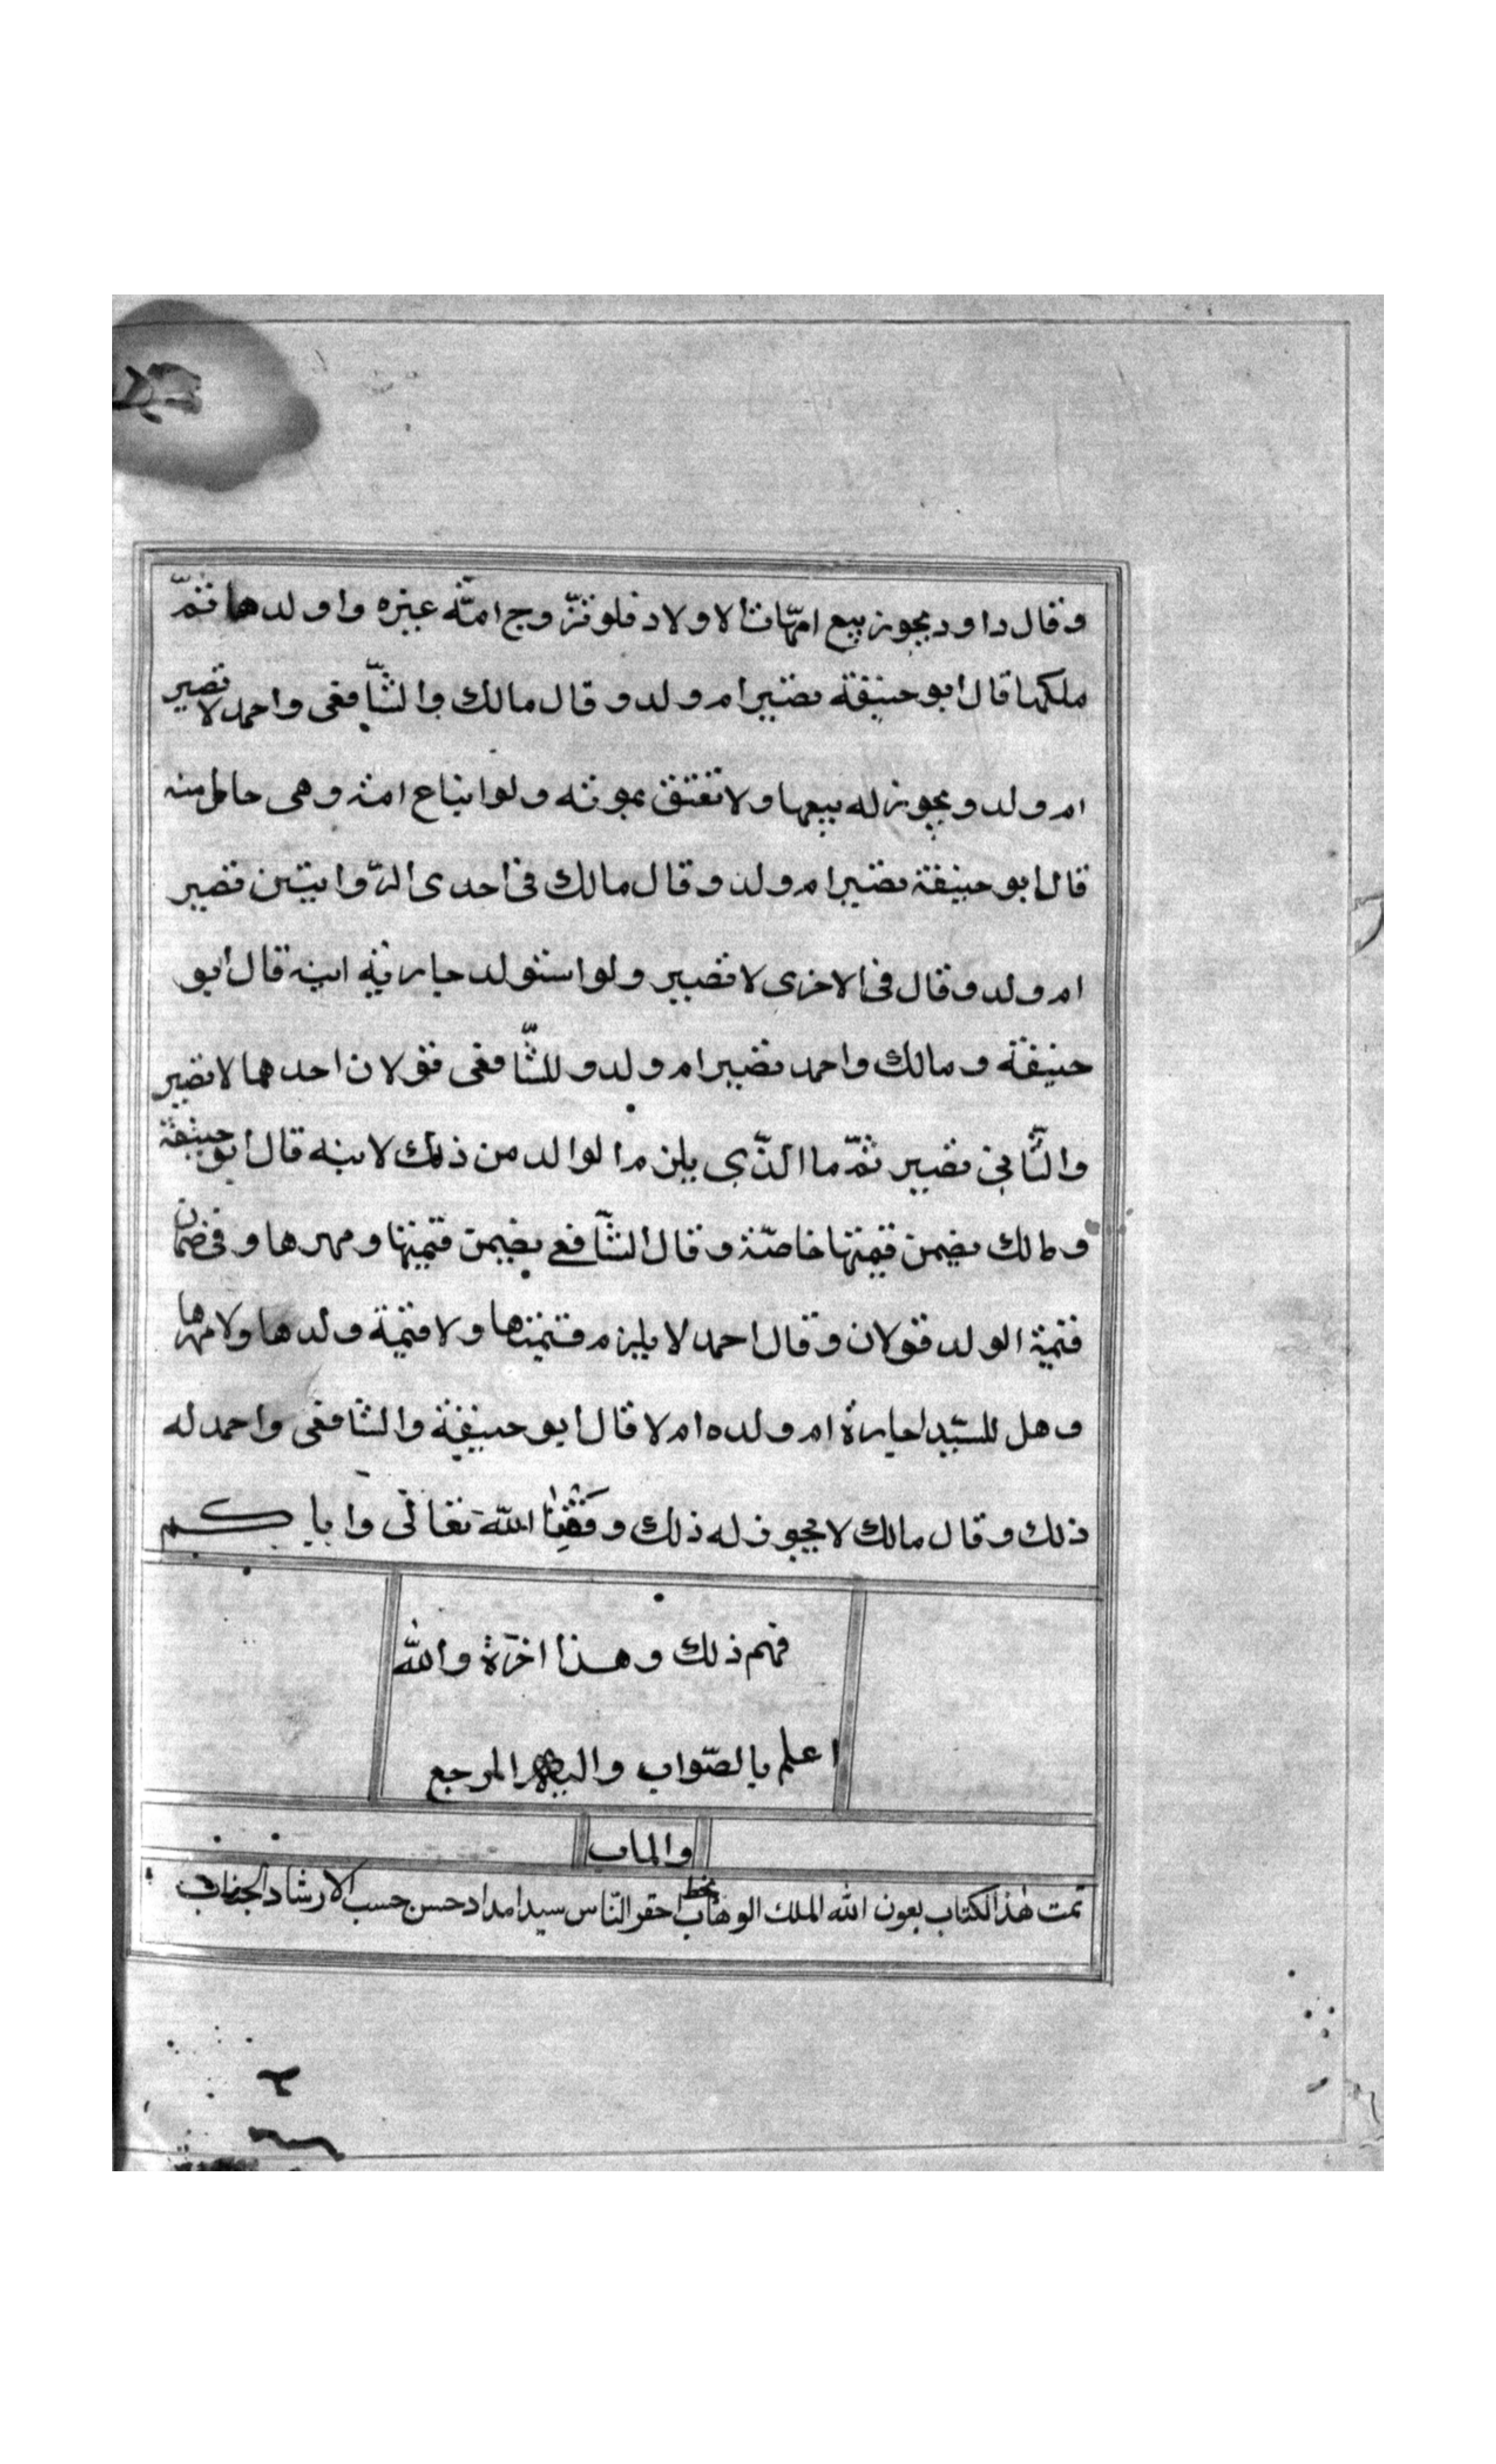 وقال داود يجوز بيع امّهات الاولاد فلو تزّوج امتّه غيره واولدها ثمّ
ملكها قال ابو حنيفة تصير ام ولد وقال مالك والشّافعى واحمد لا تصير
ام ولد و يجوز له بيعها ولا تعتق بموته ولو ابتاع امته وهى حامل منه
قال ابو حنيفة تصير ام ولد وقال مالك فى احدى الرّوايتين تصير
ام ولد وقال فى الاخرى لا تصير ولو استولد جارية ابنه قال ابو
حنيفة ومالك واحمد تصير ام ولد و للشّافعى قولان احدهما لا تصير
والثّانى تصير ثمّ ما الّذى يلزم الوالد من ذلك لابنه قال ابو حنيفة
ومالك يضمن قيمتها خاصّة وقال الشّافعے يضمن قيمتها ومهرها وفى ضمان
قيمة الولد قولان وقال احمد لا يلزم قيمتها ولا قيمة ولدها ولا مهرها
وهل للسّيد اجارة ام ولده ام لا قال ابو حنيفة والشافعى واحمد له
ذلك وقال مالك لا يجوز له ذلك وفّقنا اللّه تعالٰى واياكم
فهم ذلك وهذا اخرة واللّه
اعلم بالصّواب واليه المرجع
والماب
تمت هٰذ الكتاب بعون اللّه الملك الوهاب بخط احقر النّاس سيد امداد حسن حسب الارشاد الجناب